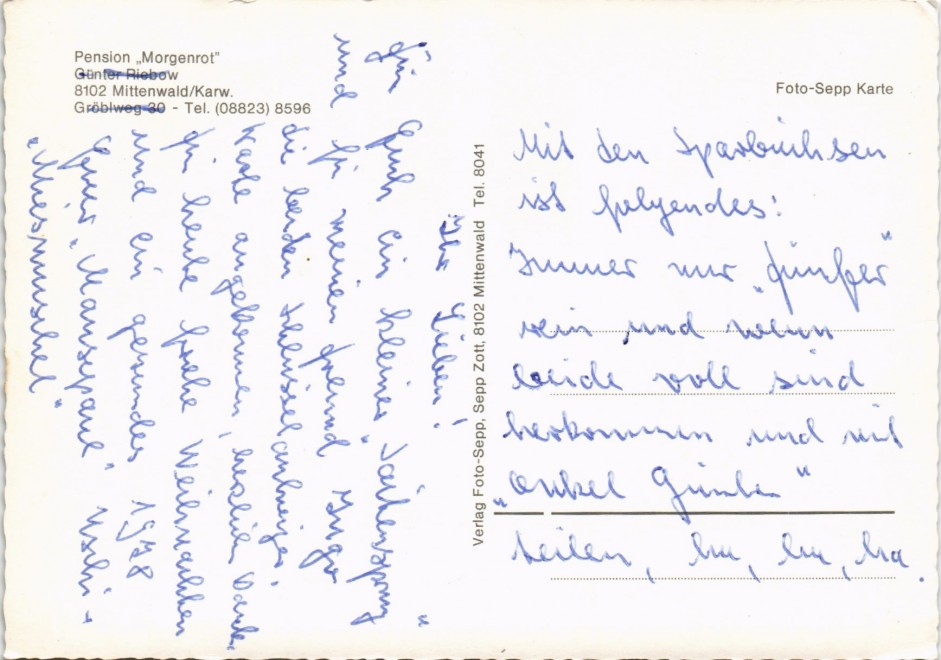 Pension „Morgenrot”
Günter Riebow
8102 Mittenwald/Karw.
Gröblweg 30 - Tel. (08823) 8596
Ihr Lieben!
Für Euch ein kleiner „Saitensprung“
und für meinen Freund Ingo
die beiden Schlüsselanhänger.
Karte angekommen, herzlichen Dank
für heute frohe Weihnachten
und ein gesundes 1978
Euer „Mausepaul“ Uschi -
„Miesmuschel“
Verlag Foto-Sepp, Sepp Zott, 8102 Mittenwald Tel. 8041
Foto-Sepp Karte
Mit den Sparbüchsen
ist folgendes:
Immer nur „Fünfer“
rein und wenn
beide voll sind
herkommen und mit
„Onkel Günter“
teilen, ha, ha, ha.